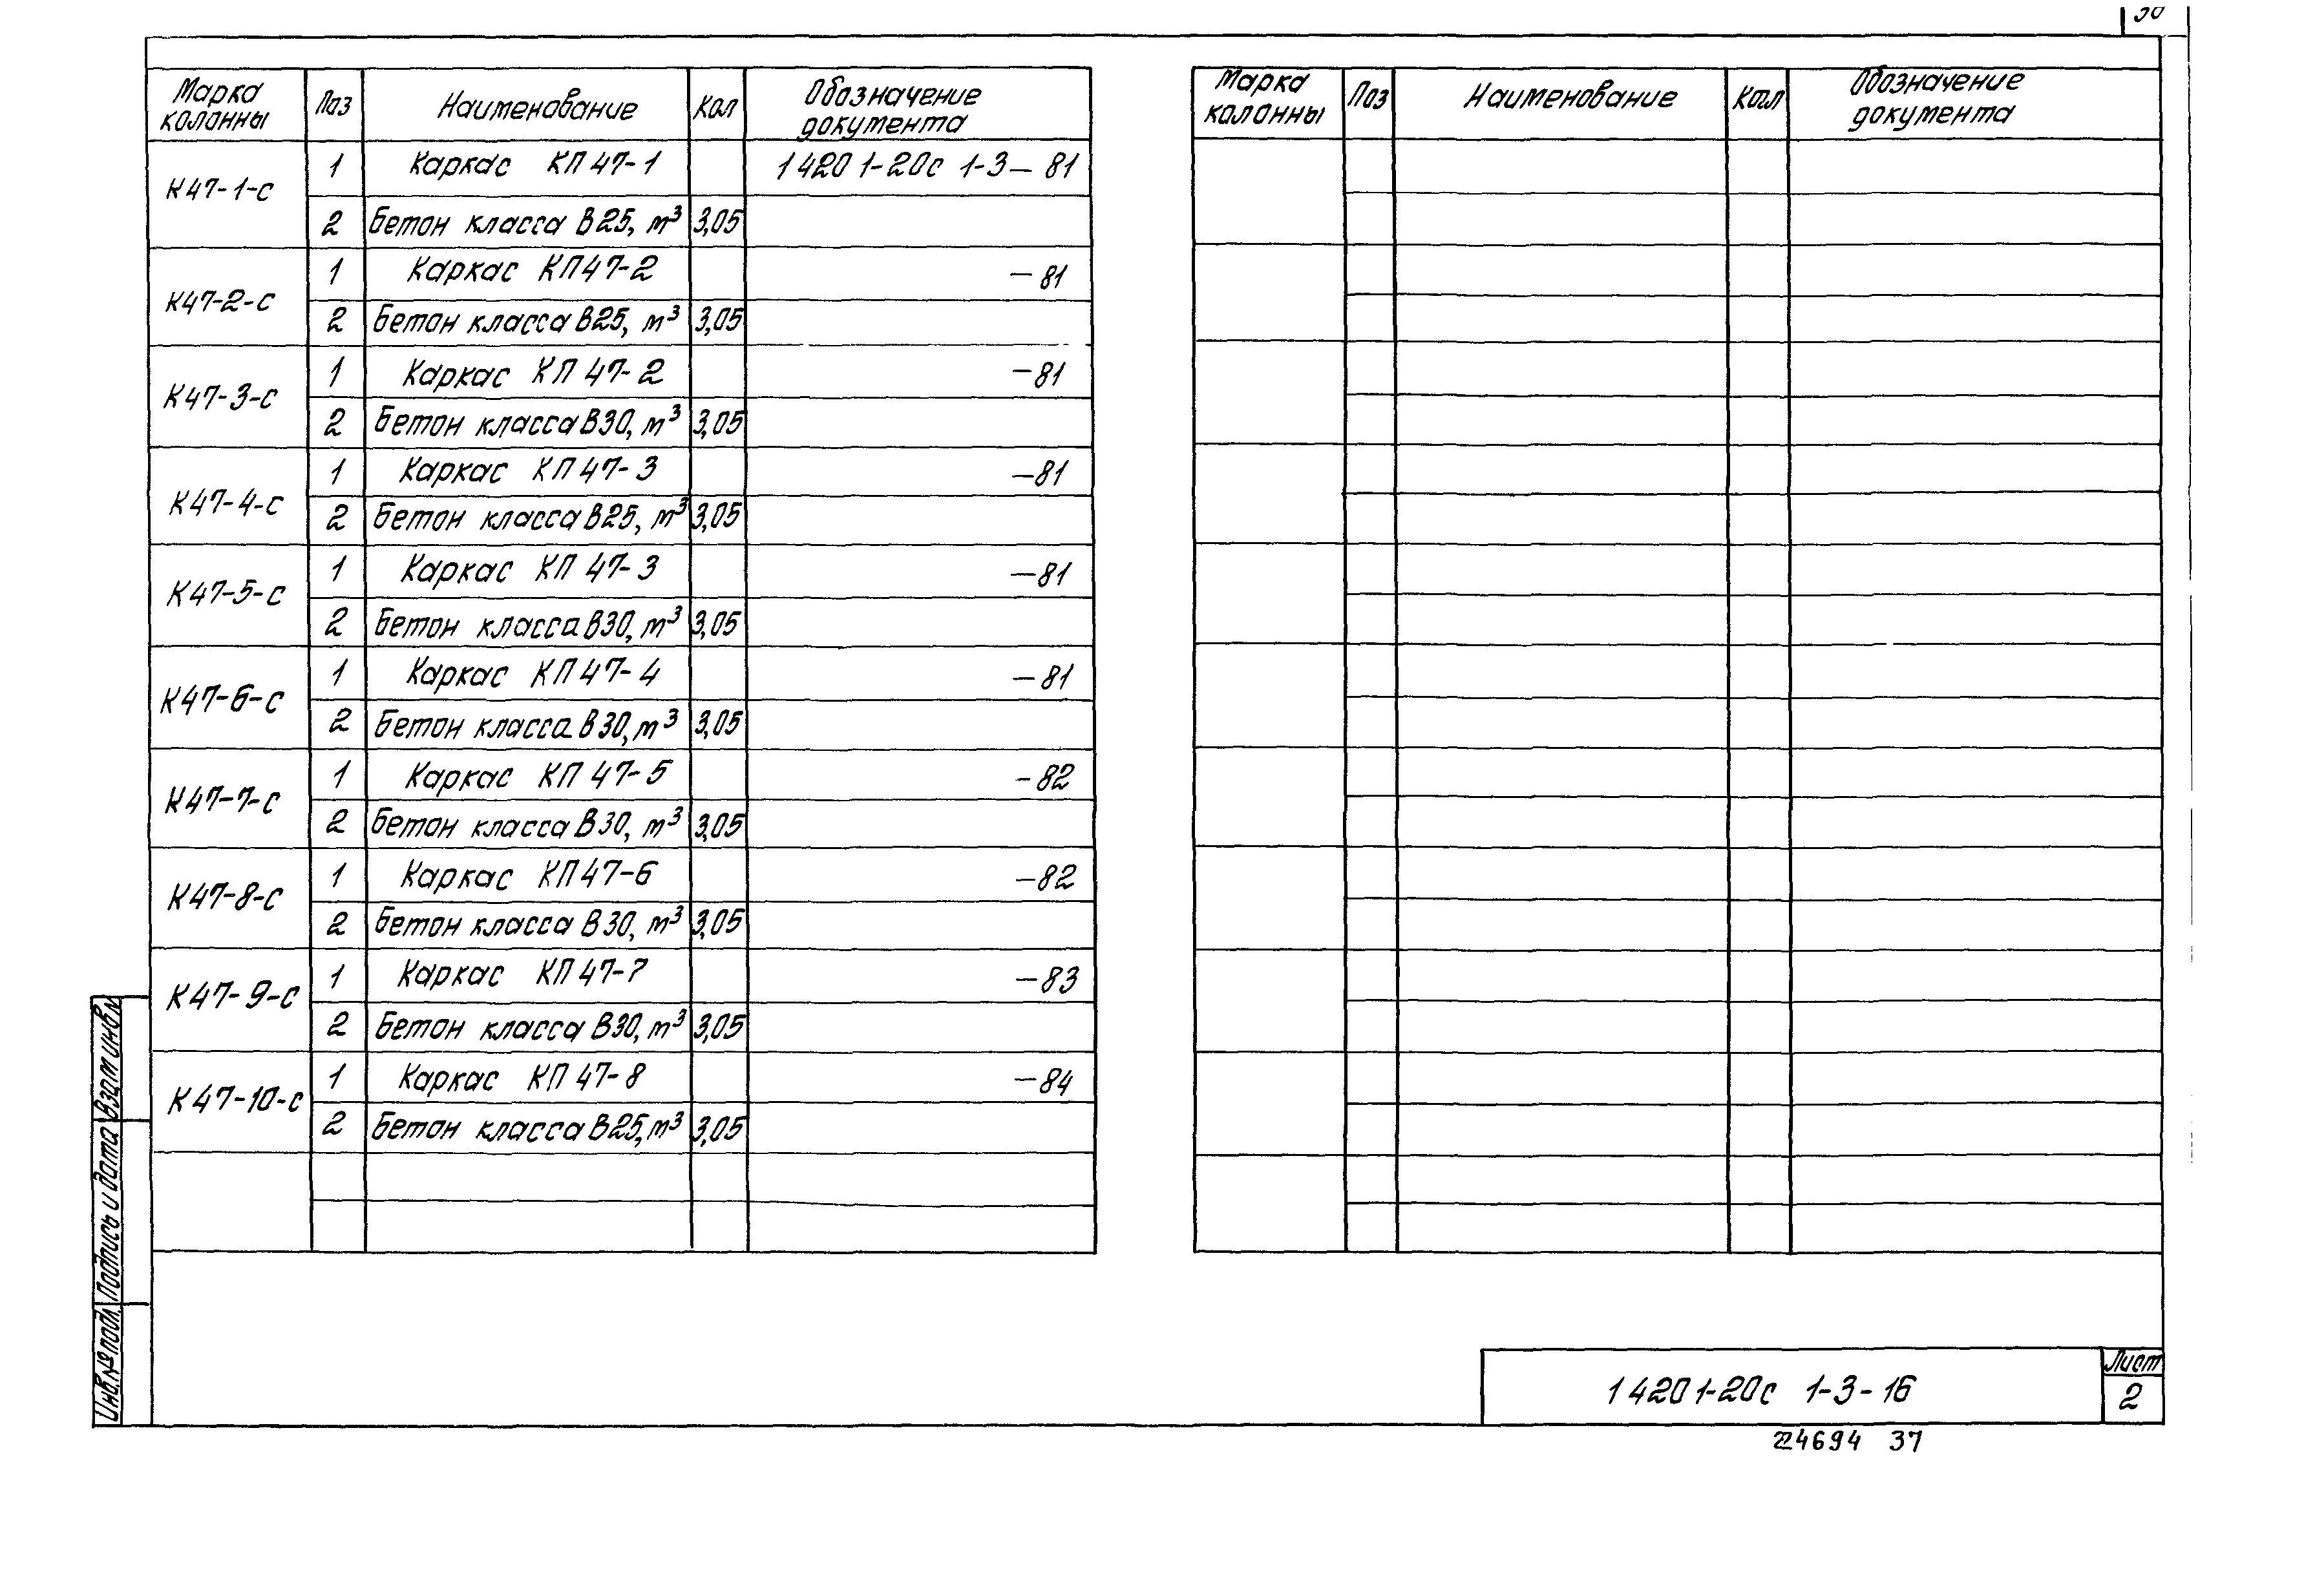 Марка колонны Поз Наименование Кол Обозначение документа
К47-1-с 1 Каркас КП47-1 1 420 1-20с 1-3-81
2 Бетон класса В25, м³ 3,05
К47-2-с 1 Каркас КП47-2 -81
2 Бетон класса В25, м³ 3,05
К47-3-с 1 Каркас КП47-2 -81
2 Бетон класса В30, м³ 3,05
К47-4-с 1 Каркас КП47-3 -81
2 Бетон класса В25, м³ 3,05
К47-5-с 1 Каркас КП47-3 -81
2 Бетон класса В30, м³ 3,05
К47-6-с 1 Каркас КП47-4 -81
2 Бетон класса В30, м³ 3,05
К47-7-с 1 Каркас КП47-5 -82
2 Бетон класса В30, м³ 3,05
К47-8-с 1 Каркас КП47-6 -82
2 Бетон класса В30, м³ 3,05
К47-9-с 1 Каркас КП47-7 -83
2 Бетон класса В30, м³ 3,05
К47-10-с 1 Каркас КП47-8 -84
2 Бетон класса В25, м³ 3,05
Марка колонны Поз Наименование Кол Обозначение документа
Инв.№подл. Подпись и дата Взам инв№
1 420 1-20с 1-3-16
Лист
2
24694 37